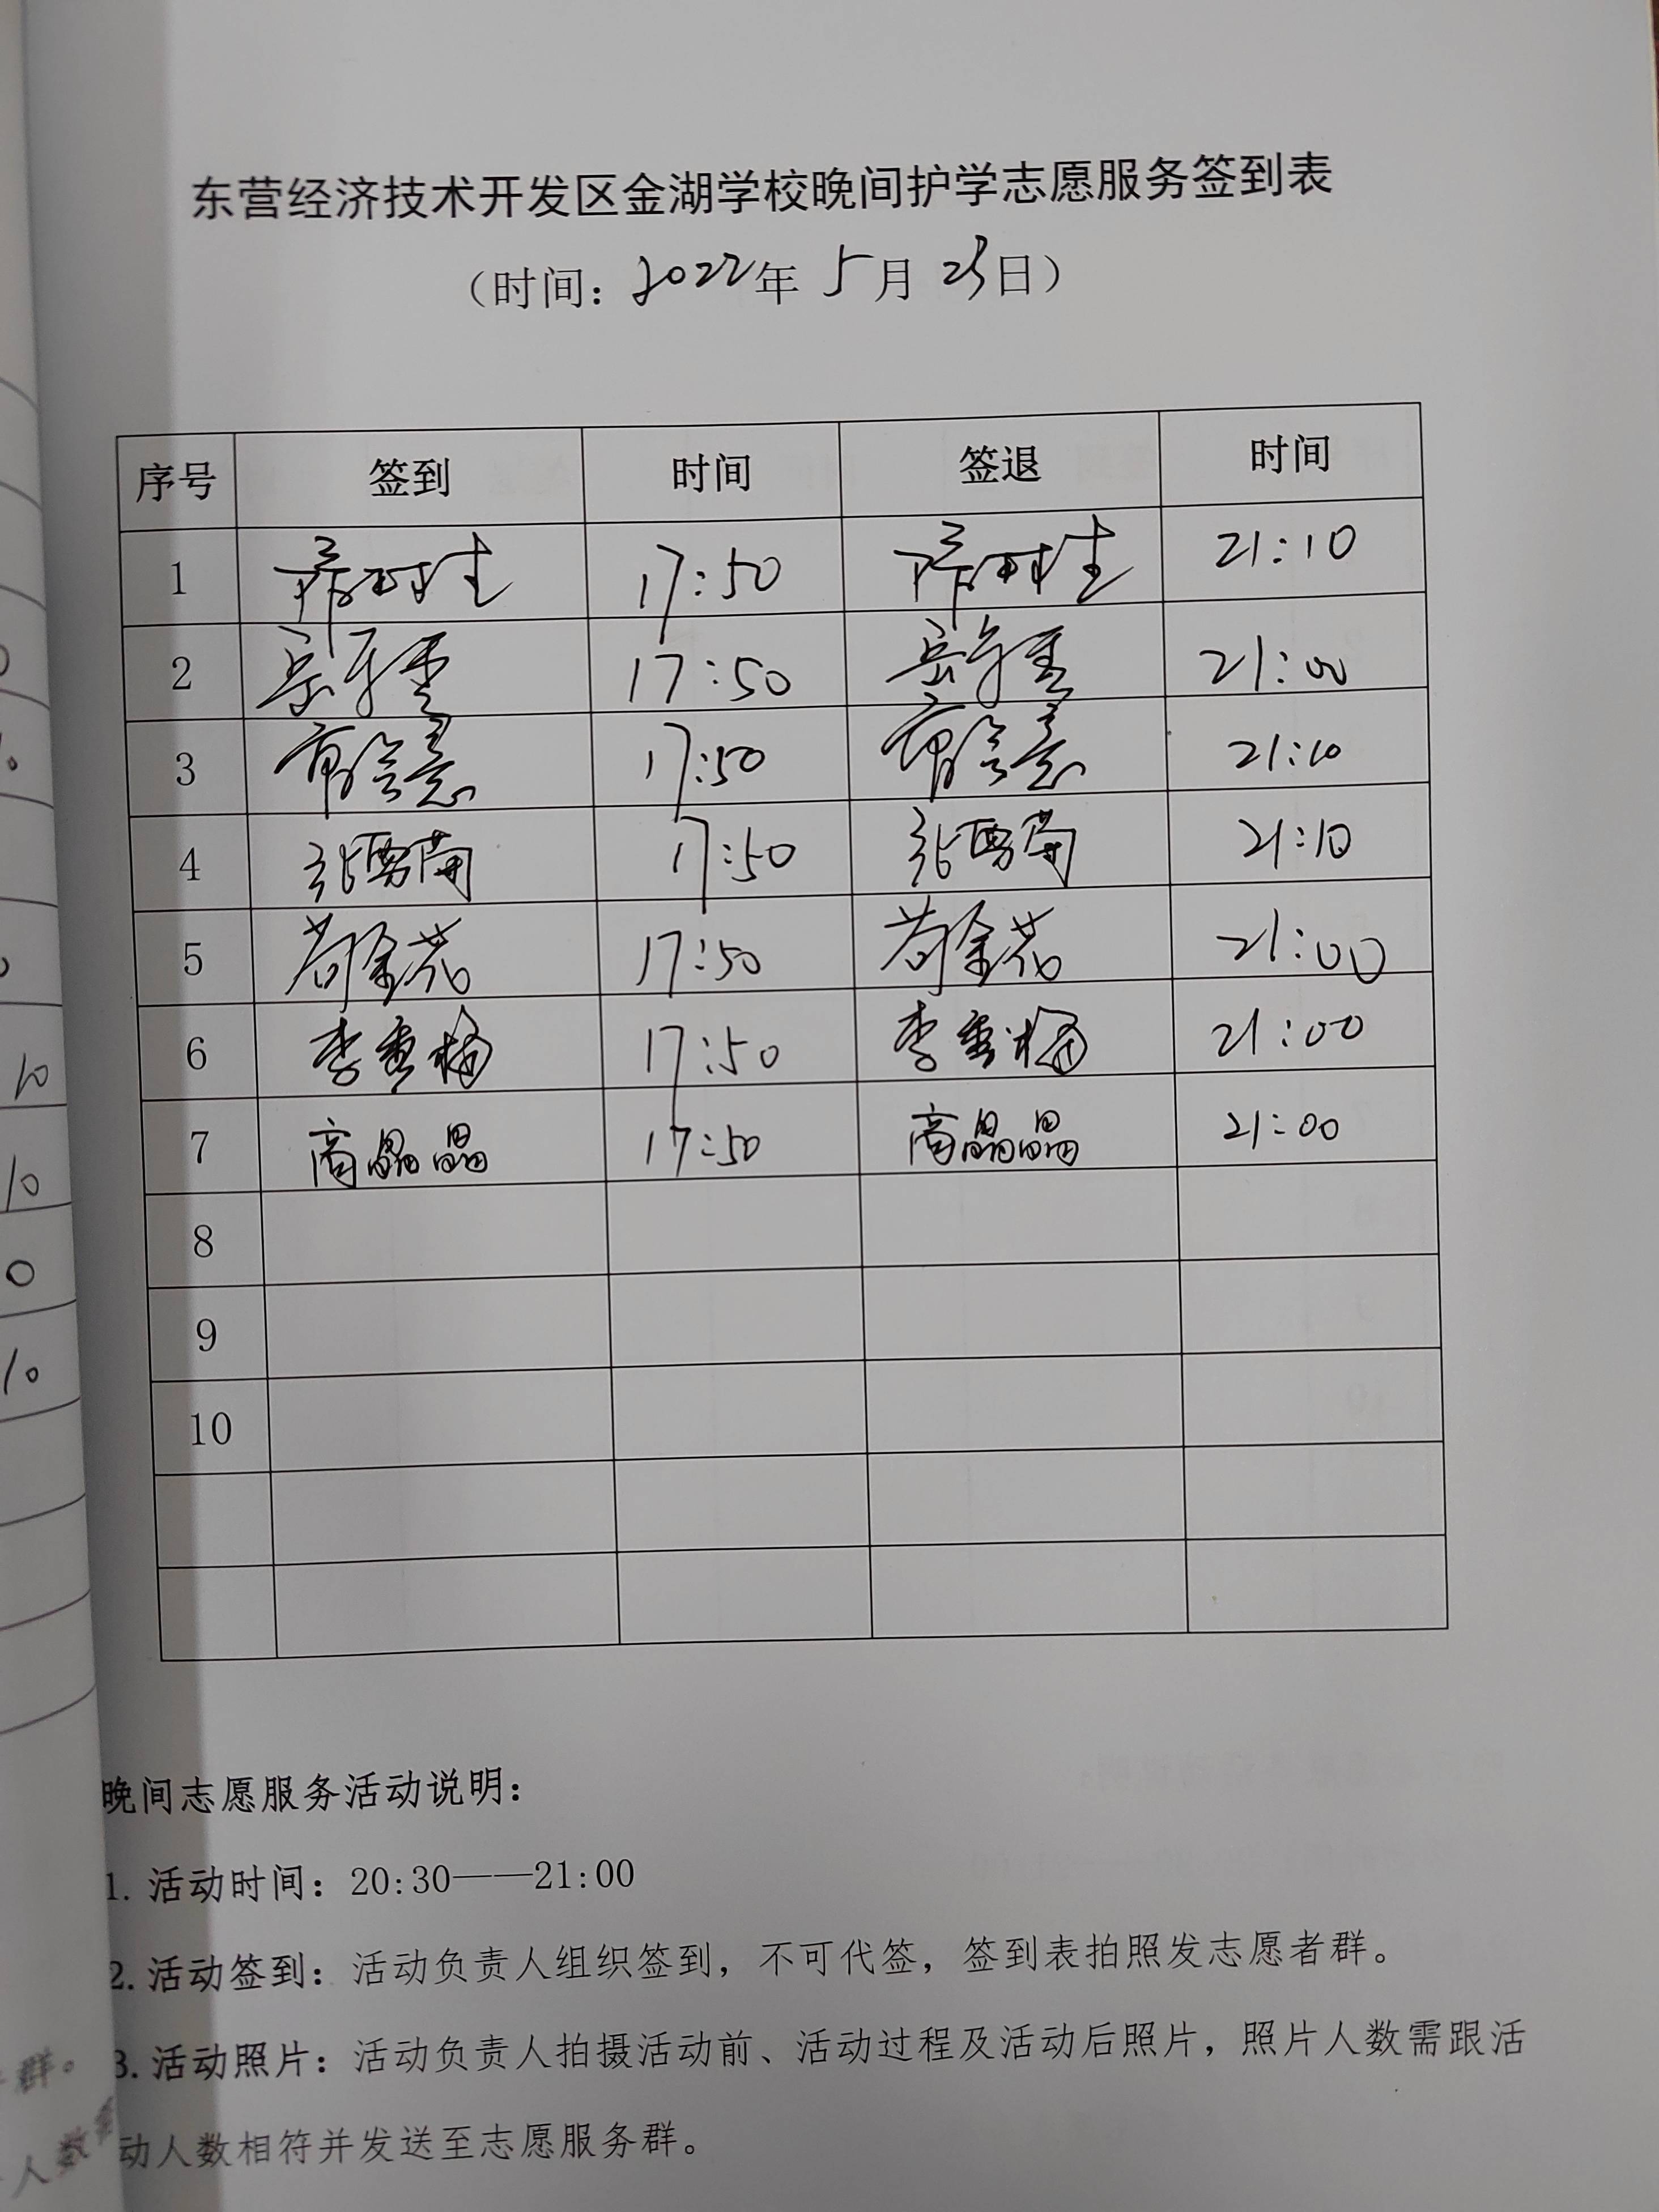 东营经济技术开发区金湖学校晚间护学志愿服务签到表
（时间：2022年 5月 23日）
序号 签到 时间 签退 时间
1 17:50 21:10
2 17:50 21:00
3 17:50 21:10
4 17:50 21:10
5 苟金花 17:50 苟金花 21:00
6 李秀梅 17:50 李秀梅 21:00
7 商晶晶 17:50 商晶晶 21:00
8
9
10
晚间志愿服务活动说明：
1. 活动时间：20:30——21:00
2. 活动签到：活动负责人组织签到，不可代签，签到表拍照发志愿者群。
3. 活动照片：活动负责人拍摄活动前、活动过程及活动后照片，照片人数需跟活
动人数相符并发送至志愿服务群。